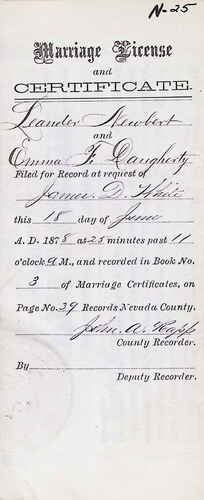 N-25
Marriage License
and
CERTIFICATE.
Leander Newbert
and
Emma F Daugherty
Filed for Record at request of
James D. White
this 18 day of June
A. D. 1878 at 25 minutes past 11
o'clock A M., and recorded in Book No.
3 of Marriage Certificates, on
Page No. 39 Records Nevada County.
John A. Rapp
County Recorder.
By
Deputy Recorder.